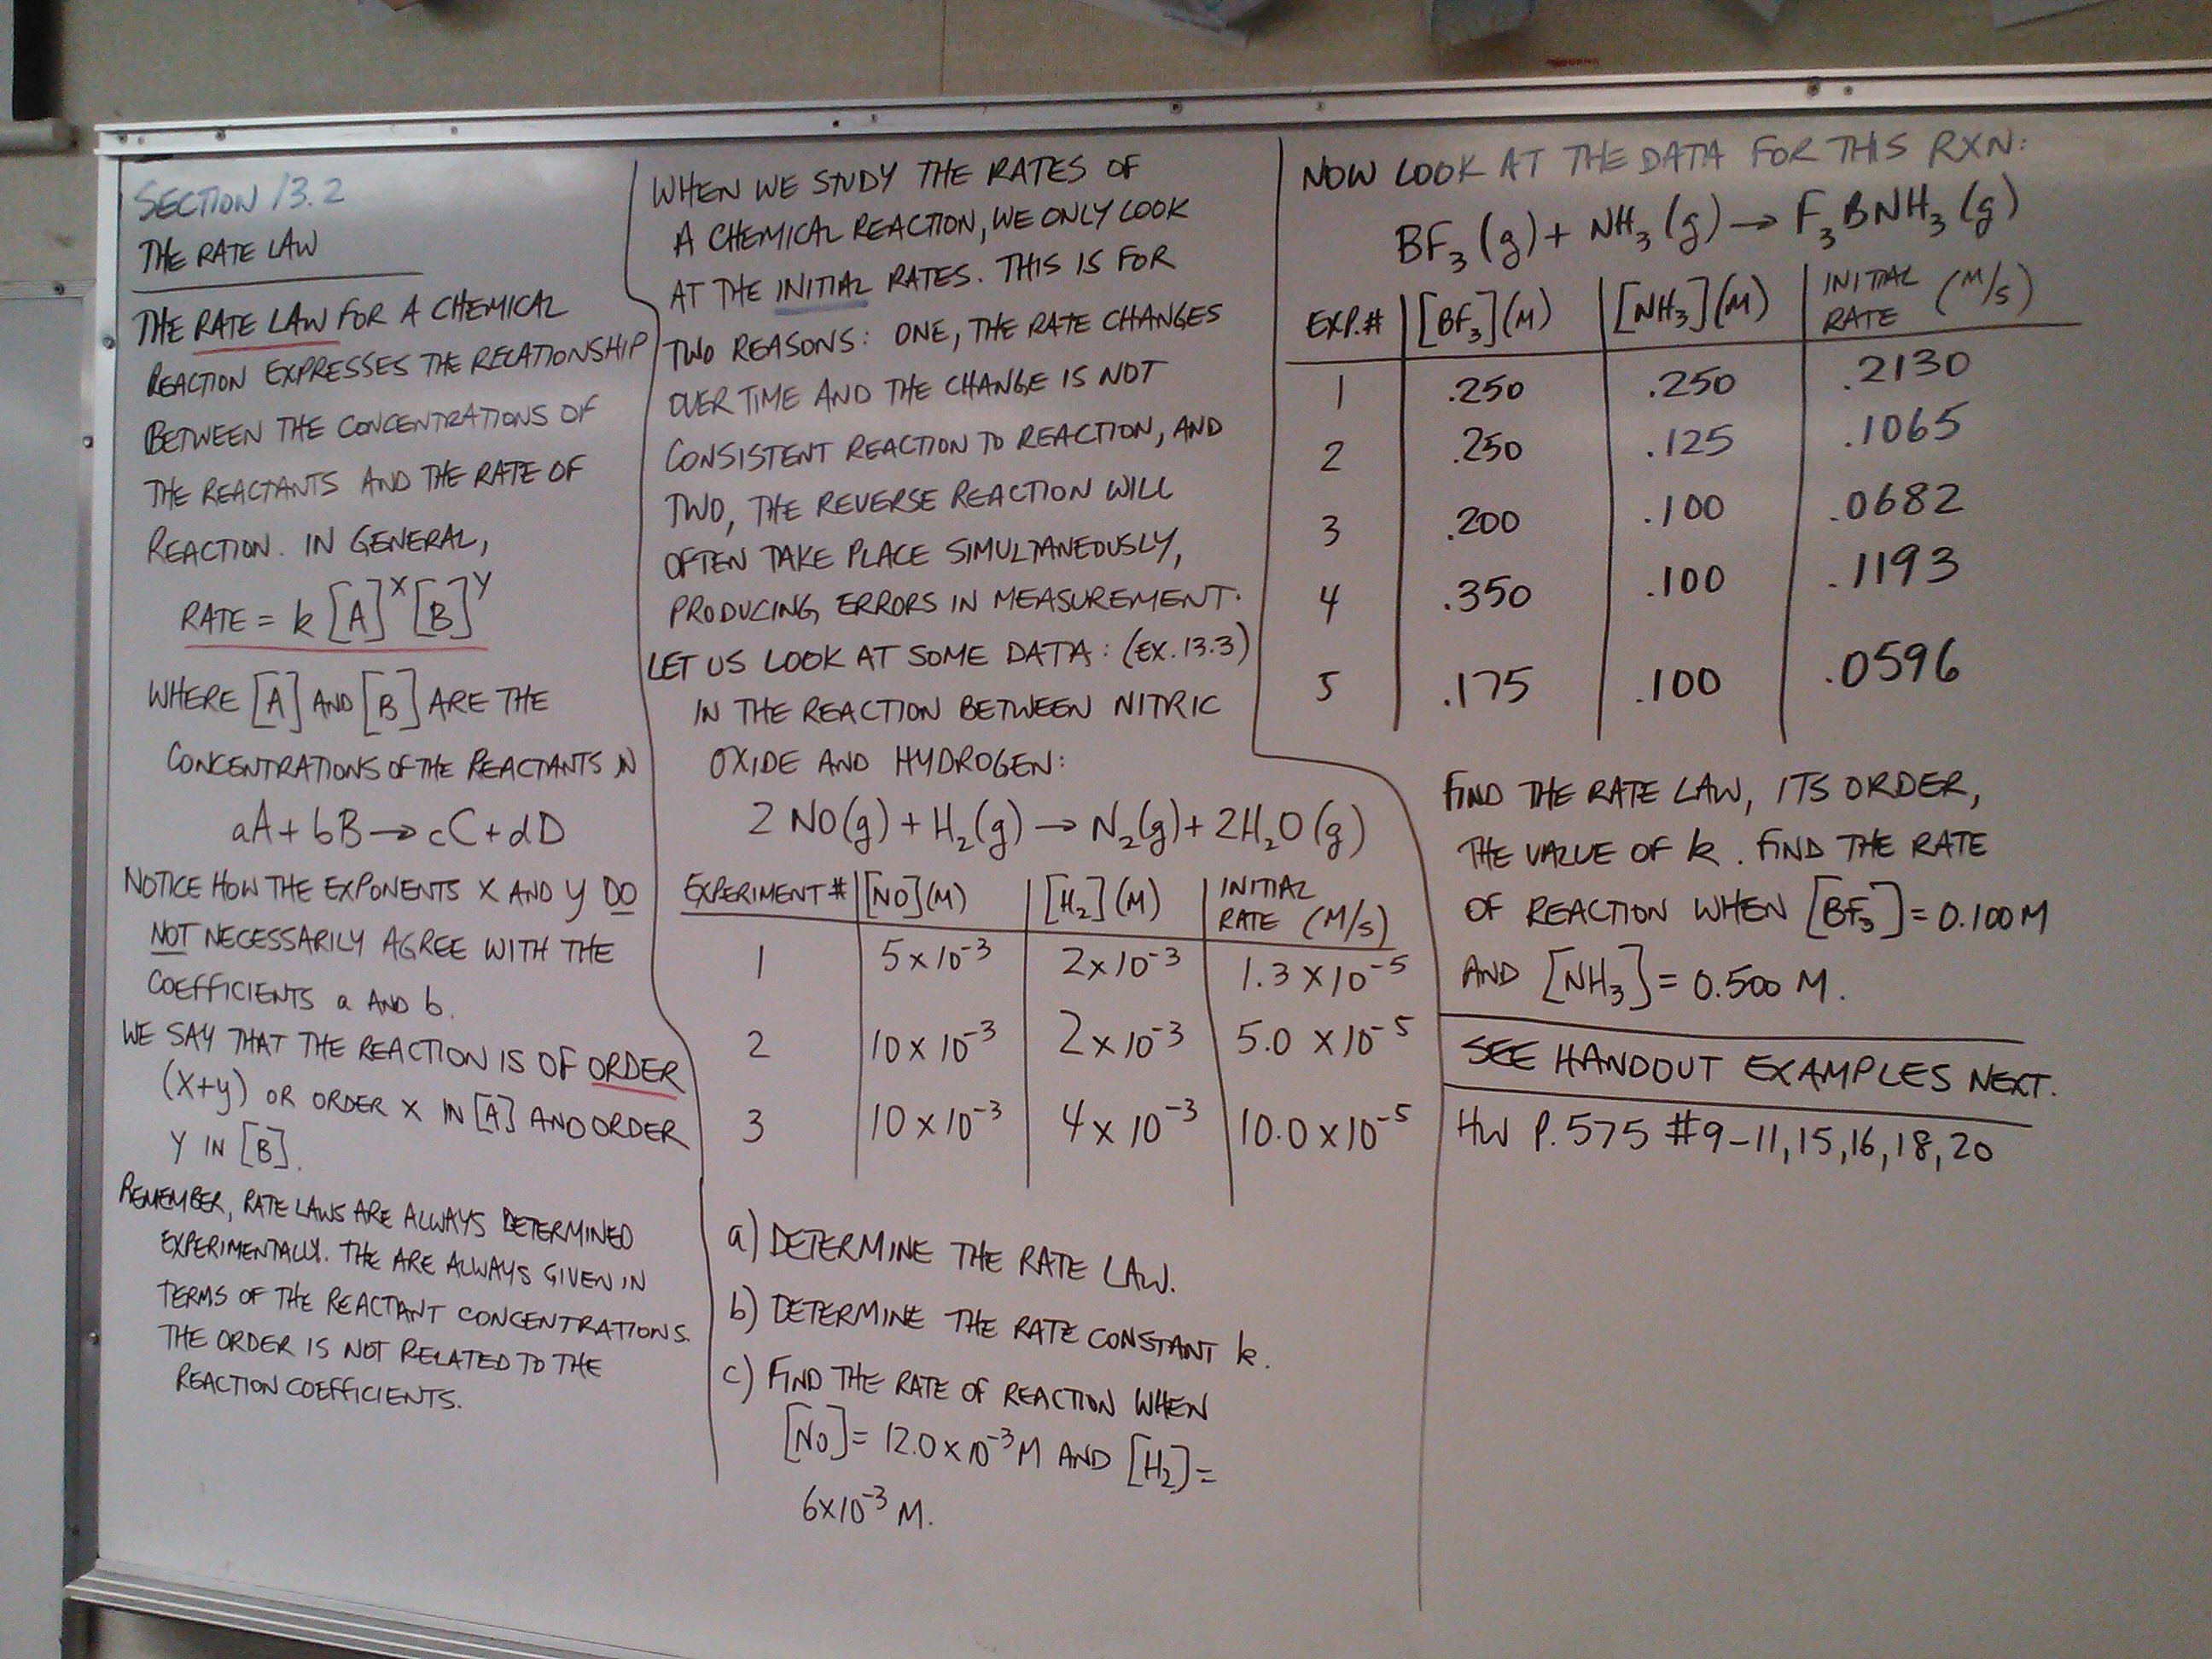 SECTION 13.2
THE RATE LAW
THE RATE LAW FOR A CHEMICAL
REACTION EXPRESSES THE RELATIONSHIP
BETWEEN THE CONCENTRATIONS OF
THE REACTANTS AND THE RATE OF
REACTION. IN GENERAL,
RATE = k [A]^x [B]^y
WHERE [A] AND [B] ARE THE
CONCENTRATIONS OF THE REACTANTS IN
aA + bB → cC + dD
NOTICE HOW THE EXPONENTS X AND Y DO
NOT NECESSARILY AGREE WITH THE
COEFFICIENTS a AND b.
WE SAY THAT THE REACTION IS OF ORDER
(X+y) OR ORDER X IN [A] AND ORDER
Y IN [B].
REMEMBER, RATE LAWS ARE ALWAYS DETERMINED
EXPERIMENTALLY. THE ARE ALWAYS GIVEN IN
TERMS OF THE REACTANT CONCENTRATIONS.
THE ORDER IS NOT RELATED TO THE
REACTION COEFFICIENTS.
WHEN WE STUDY THE RATES OF
A CHEMICAL REACTION, WE ONLY LOOK
AT THE INITIAL RATES. THIS IS FOR
TWO REASONS: ONE, THE RATE CHANGES
OVER TIME AND THE CHANGE IS NOT
CONSISTENT REACTION TO REACTION, AND
TWO, THE REVERSE REACTION WILL
OFTEN TAKE PLACE SIMULTANEOUSLY,
PRODUCING ERRORS IN MEASUREMENT.
LET US LOOK AT SOME DATA: (EX. 13.3)
IN THE REACTION BETWEEN NITRIC
OXIDE AND HYDROGEN:
2 NO(g) + H₂(g) → N₂(g) + 2H₂O(g)
EXPERIMENT # [NO](M) [H₂](M) INITIAL RATE (M/s)
1 5×10⁻³ 2×10⁻³ 1.3×10⁻⁵
2 10×10⁻³ 2×10⁻³ 5.0×10⁻⁵
3 10×10⁻³ 4×10⁻³ 10.0×10⁻⁵
a) DETERMINE THE RATE LAW.
b) DETERMINE THE RATE CONSTANT k.
c) FIND THE RATE OF REACTION WHEN
[NO] = 12.0×10⁻³M AND [H₂] =
6×10⁻³ M.
NOW LOOK AT THE DATA FOR THIS RXN:
BF₃(g) + NH₃(g) → F₃BNH₃(g)
EXP.# [BF₃](M) [NH₃](M) INITIAL RATE (M/s)
1 .250 .250 .2130
2 .250 .125 .1065
3 .200 .100 .0682
4 .350 .100 .1193
5 .175 .100 .0596
FIND THE RATE LAW, ITS ORDER,
THE VALUE OF k. FIND THE RATE
OF REACTION WHEN [BF₃] = 0.100M
AND [NH₃] = 0.500 M.
SEE HANDOUT EXAMPLES NEXT.
HW P. 575 #9-11, 15, 16, 18, 20